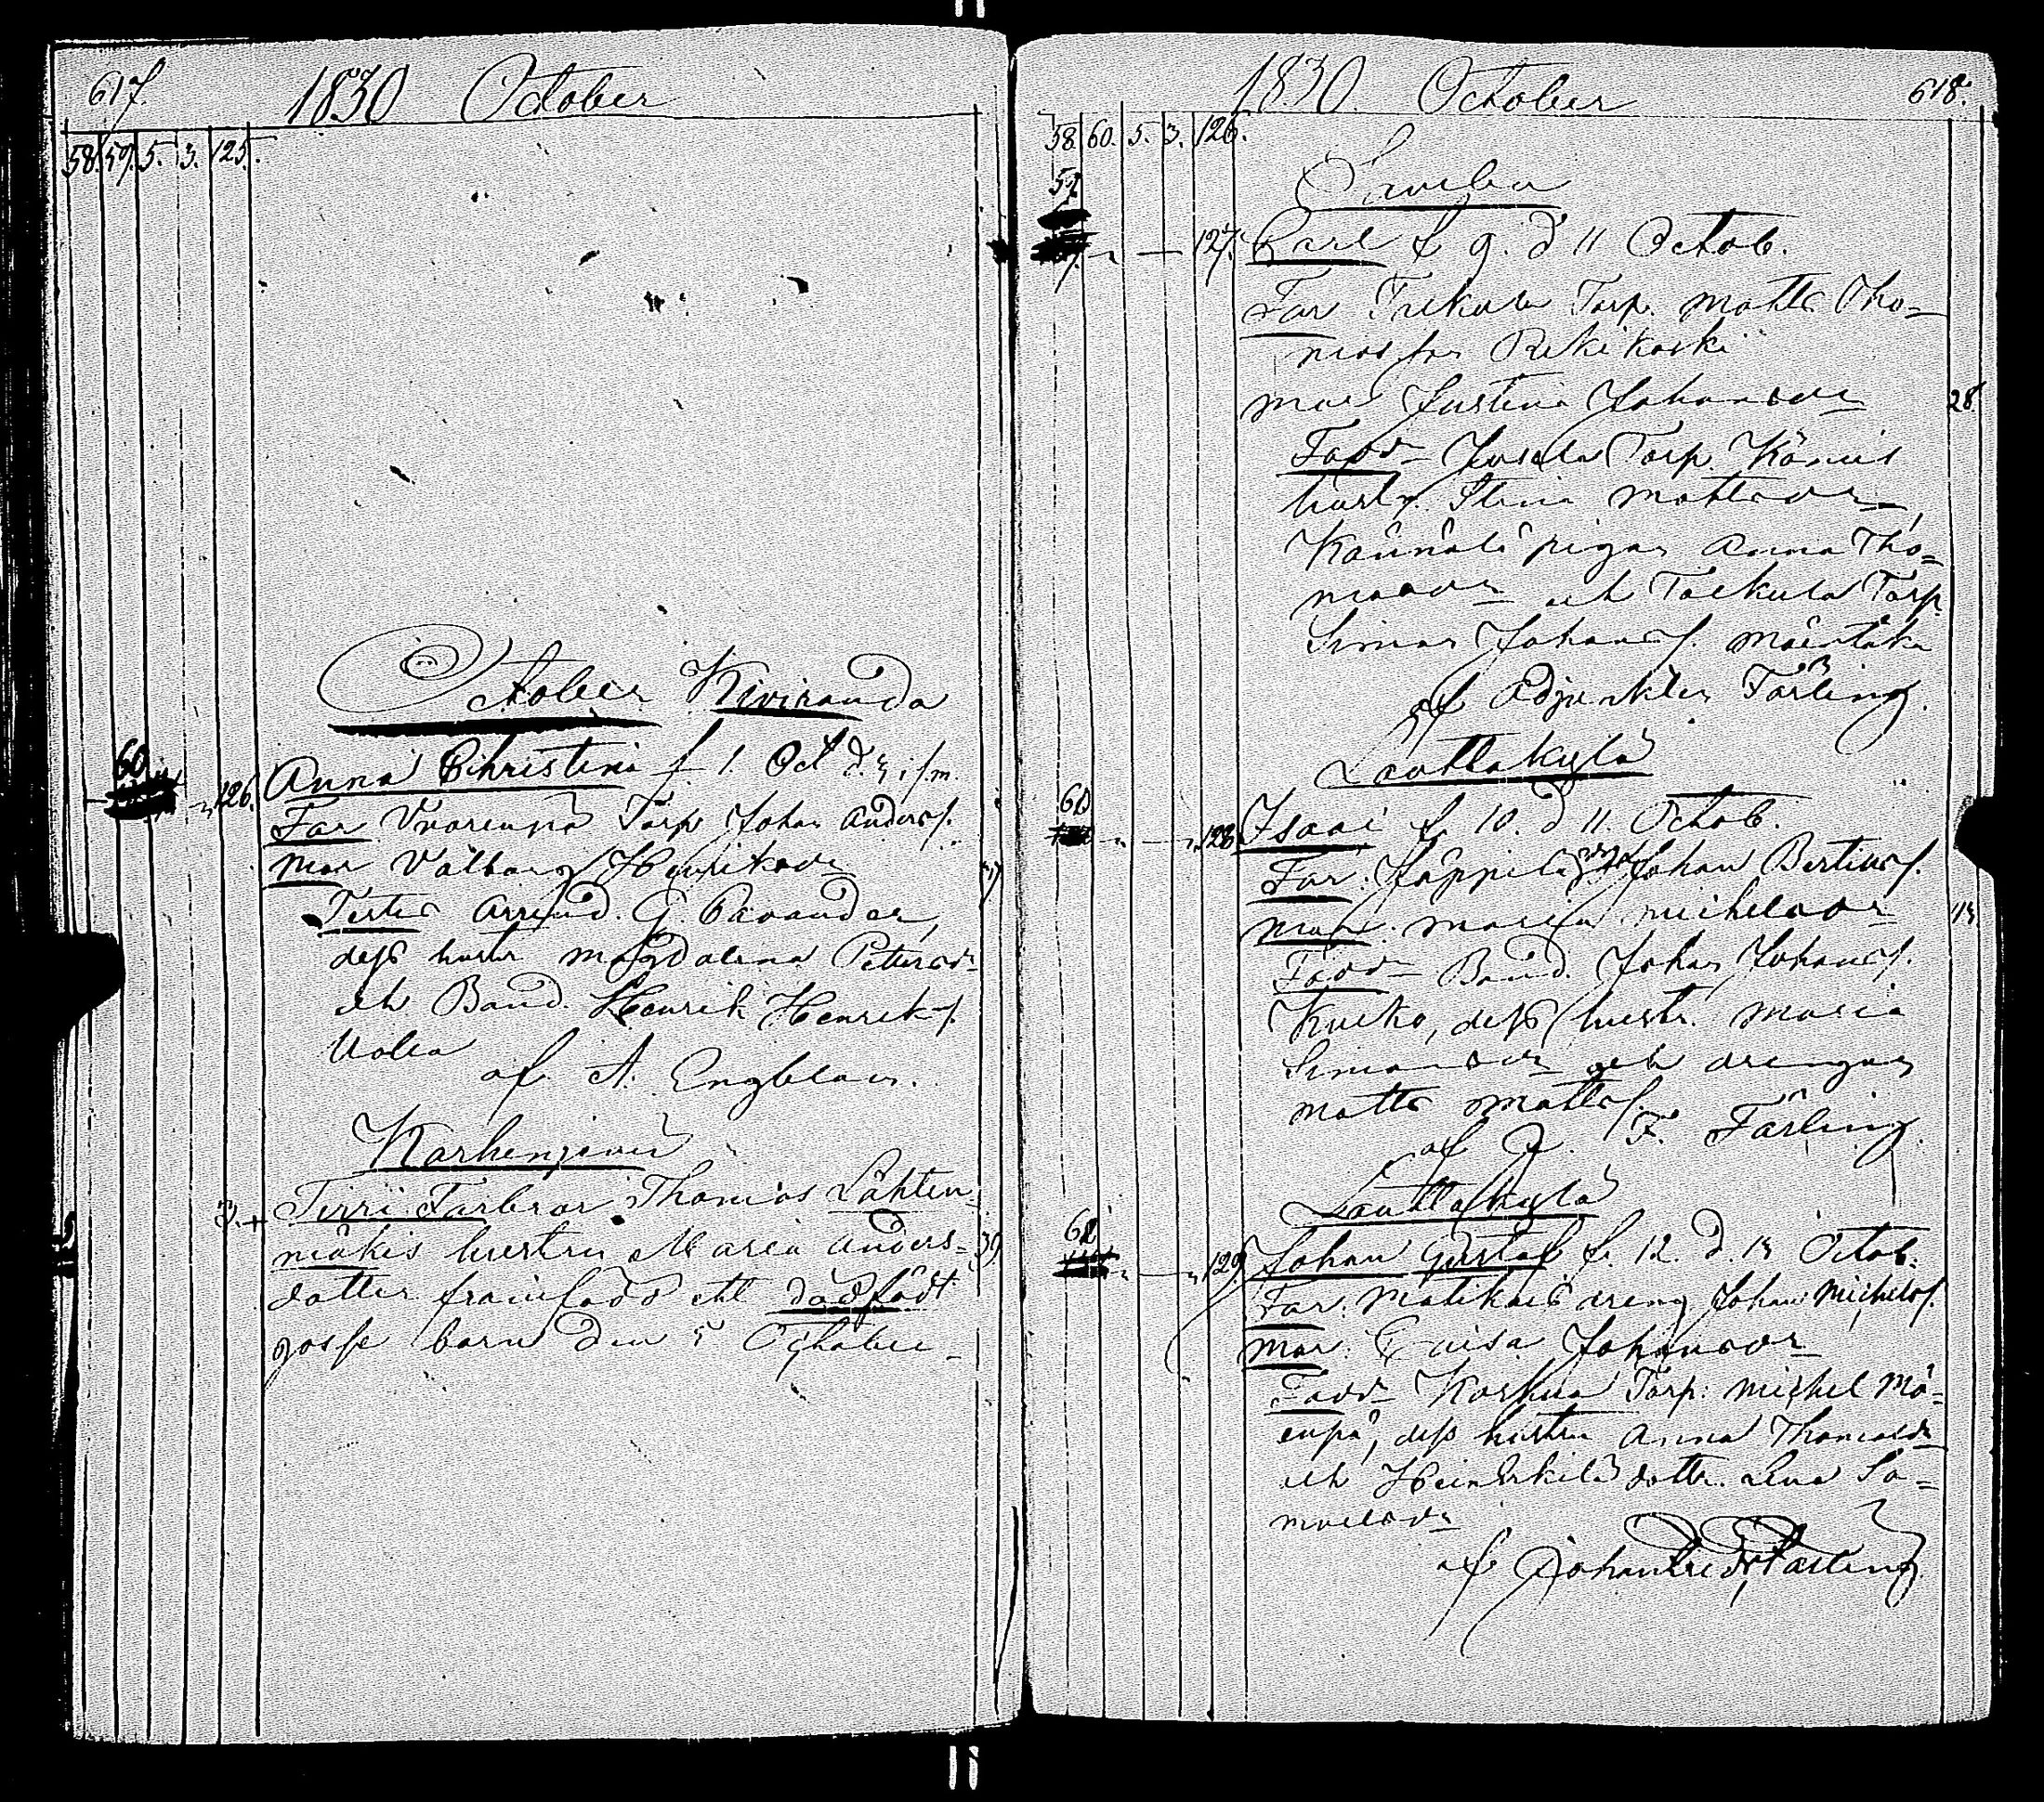 617. 1830 October
58. 59. 5. 3. 125.
October Kiviranda
60
126. Anna Christina f 1. Oct d. 3 i. f. m.
Far Torp Johan Anders f.
Mor Valborg Henriksdr
37
Testes Arrend. G. Pavander,
dess hustr Magdalena Petersdr
och Bond. Henrik Henriks f.
Uola
af A. Englain.
Karhenjewi
3. + Tirri Farbror Thomas Lähten-
mäkis hustru Maria Anders- 39
dotter framfödd ett dödfödt
gosse barn den 5 October
1830. October 618.
58. 60. 5. 3. 126.
59
127. Carl f. 9. d 11 Octob.
Far Torp. Matts Tho-
mas son Rekikoski
Mor Justina Johansdr 28
Fadd Torp.
hustr. Stina Mattsdr
pigan Anna Tho-
masdr och Torp
Simon Johans f.
af Adjunkten Färling.
Lauttakylä
60
128 Isaac f. 10. d 11. Octob
Far: Johan Bertils f.
Mor. Maria Michelsdr 13
Fadd Bond. Johan Johans f.
Kuoko, dess hustr. Maria
Simonsdr och drengen
Matts Matts f.
af J. F. Färling.
Lauttakylä
61
129. Johan Gustaf f. 12. d. 13 Octob.
Far. dreng Johan Michels f.
Mor. Caisa Johansdr
Fadd Torp. Michel Mä-
enpä, dess hustru Anna Thomasdr
och Heinikkilä dottr. Lena Sa-
muelsdr
af Johan Fredr Färling